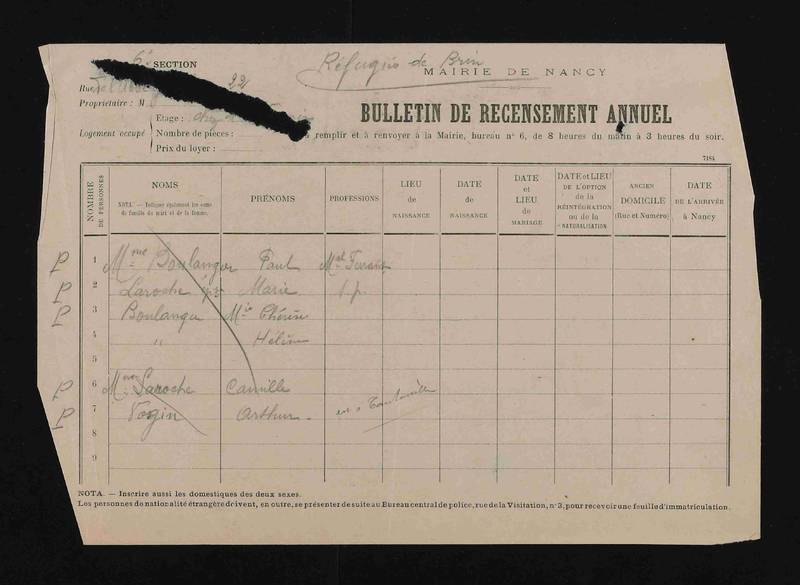 6e SECTION
Réfugiés de Brin
MAIRIE DE NANCY
Rue 22
Propriétaire : M
BULLETIN DE RECENSEMENT ANNUEL
Logement occupé
Etage : chez
Nombre de pièces :
Prix du loyer :
remplir et à renvoyer à la Mairie, bureau n° 6, de 8 heures du matin à 3 heures du soir.
7184
NOMBRE DE PERSONNES
NOMS
NOTA. — Indiquer également les noms de famille du mari et de la femme.
PRÉNOMS
PROFESSIONS
LIEU de NAISSANCE
DATE de NAISSANCE
DATE et LIEU de MARIAGE
DATE et LIEU DE L'OPTION de la RÉINTÉGRATION ou de la NATURALISATION
ANCIEN DOMICILE (Rue et Numéro)
DATE DE L'ARRIVÉE à Nancy
P 1 Mme Boulanger Paul Mal
P 2 Laroche Marie s.p.
P 3 Boulanger Mie Thérèse
4 " Hélène
5
P 6 Mme Laroche Camille
P 7 Vogin Arthur.
8
9
NOTA. — Inscrire aussi les domestiques des deux sexes.
Les personnes de nationalité étrangère doivent, en outre, se présenter de suite au Bureau central de police, rue de la Visitation, n° 3, pour recevoir une feuille d'immatriculation.